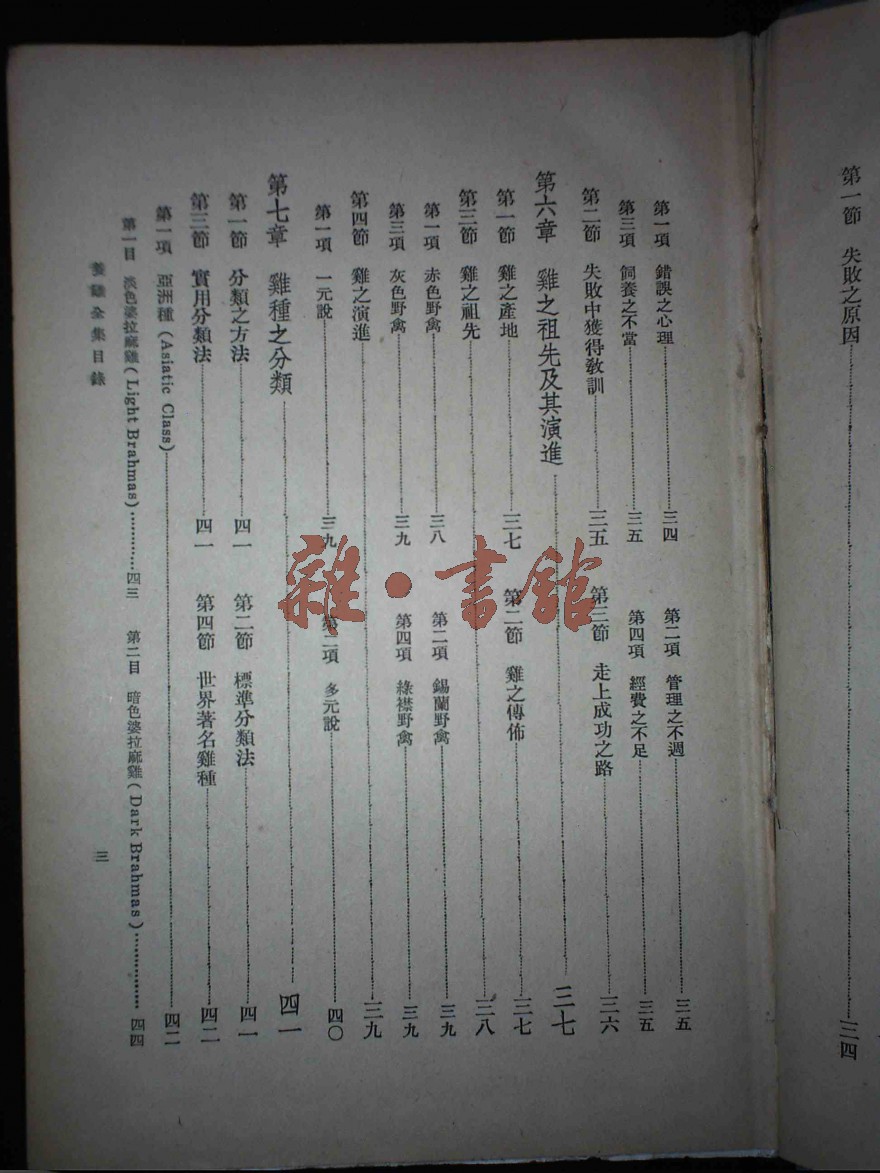 第一節　失敗之原因……三四
第一項　錯誤之心理……三四　第二項　管理之不週……三五
第三項　飼養之不當……三五　第四項　經費之不足……三五
第二節　失敗中獲得教訓……三五　第三節　走上成功之路……三六
第六章　雞之祖先及其演進……三七
第一節　雞之產地……三七　第二節　雞之傳佈……三七
第三節　雞之祖先……三八
第一項　赤色野禽……三八　第二項　錫蘭野禽……三九
第三項　灰色野禽……三九　第四項　綠襟野禽……三九
第四節　雞之演進……三九
第一項　一元說……三九　第二項　多元說……四〇
第七章　雞種之分類……四一
第一節　分類之方法……四一　第二節　標準分類法……四一
第三節　實用分類法……四一　第四節　世界著名雞種……四二
第一項　亞洲種(Asiatic Class)……四二
第一目　淡色婆拉麻雞(Light Brahmas)……四三　第二目　暗色婆拉麻雞(Dark Brahmas)……四四
養雞全集目錄　三
雜·書館